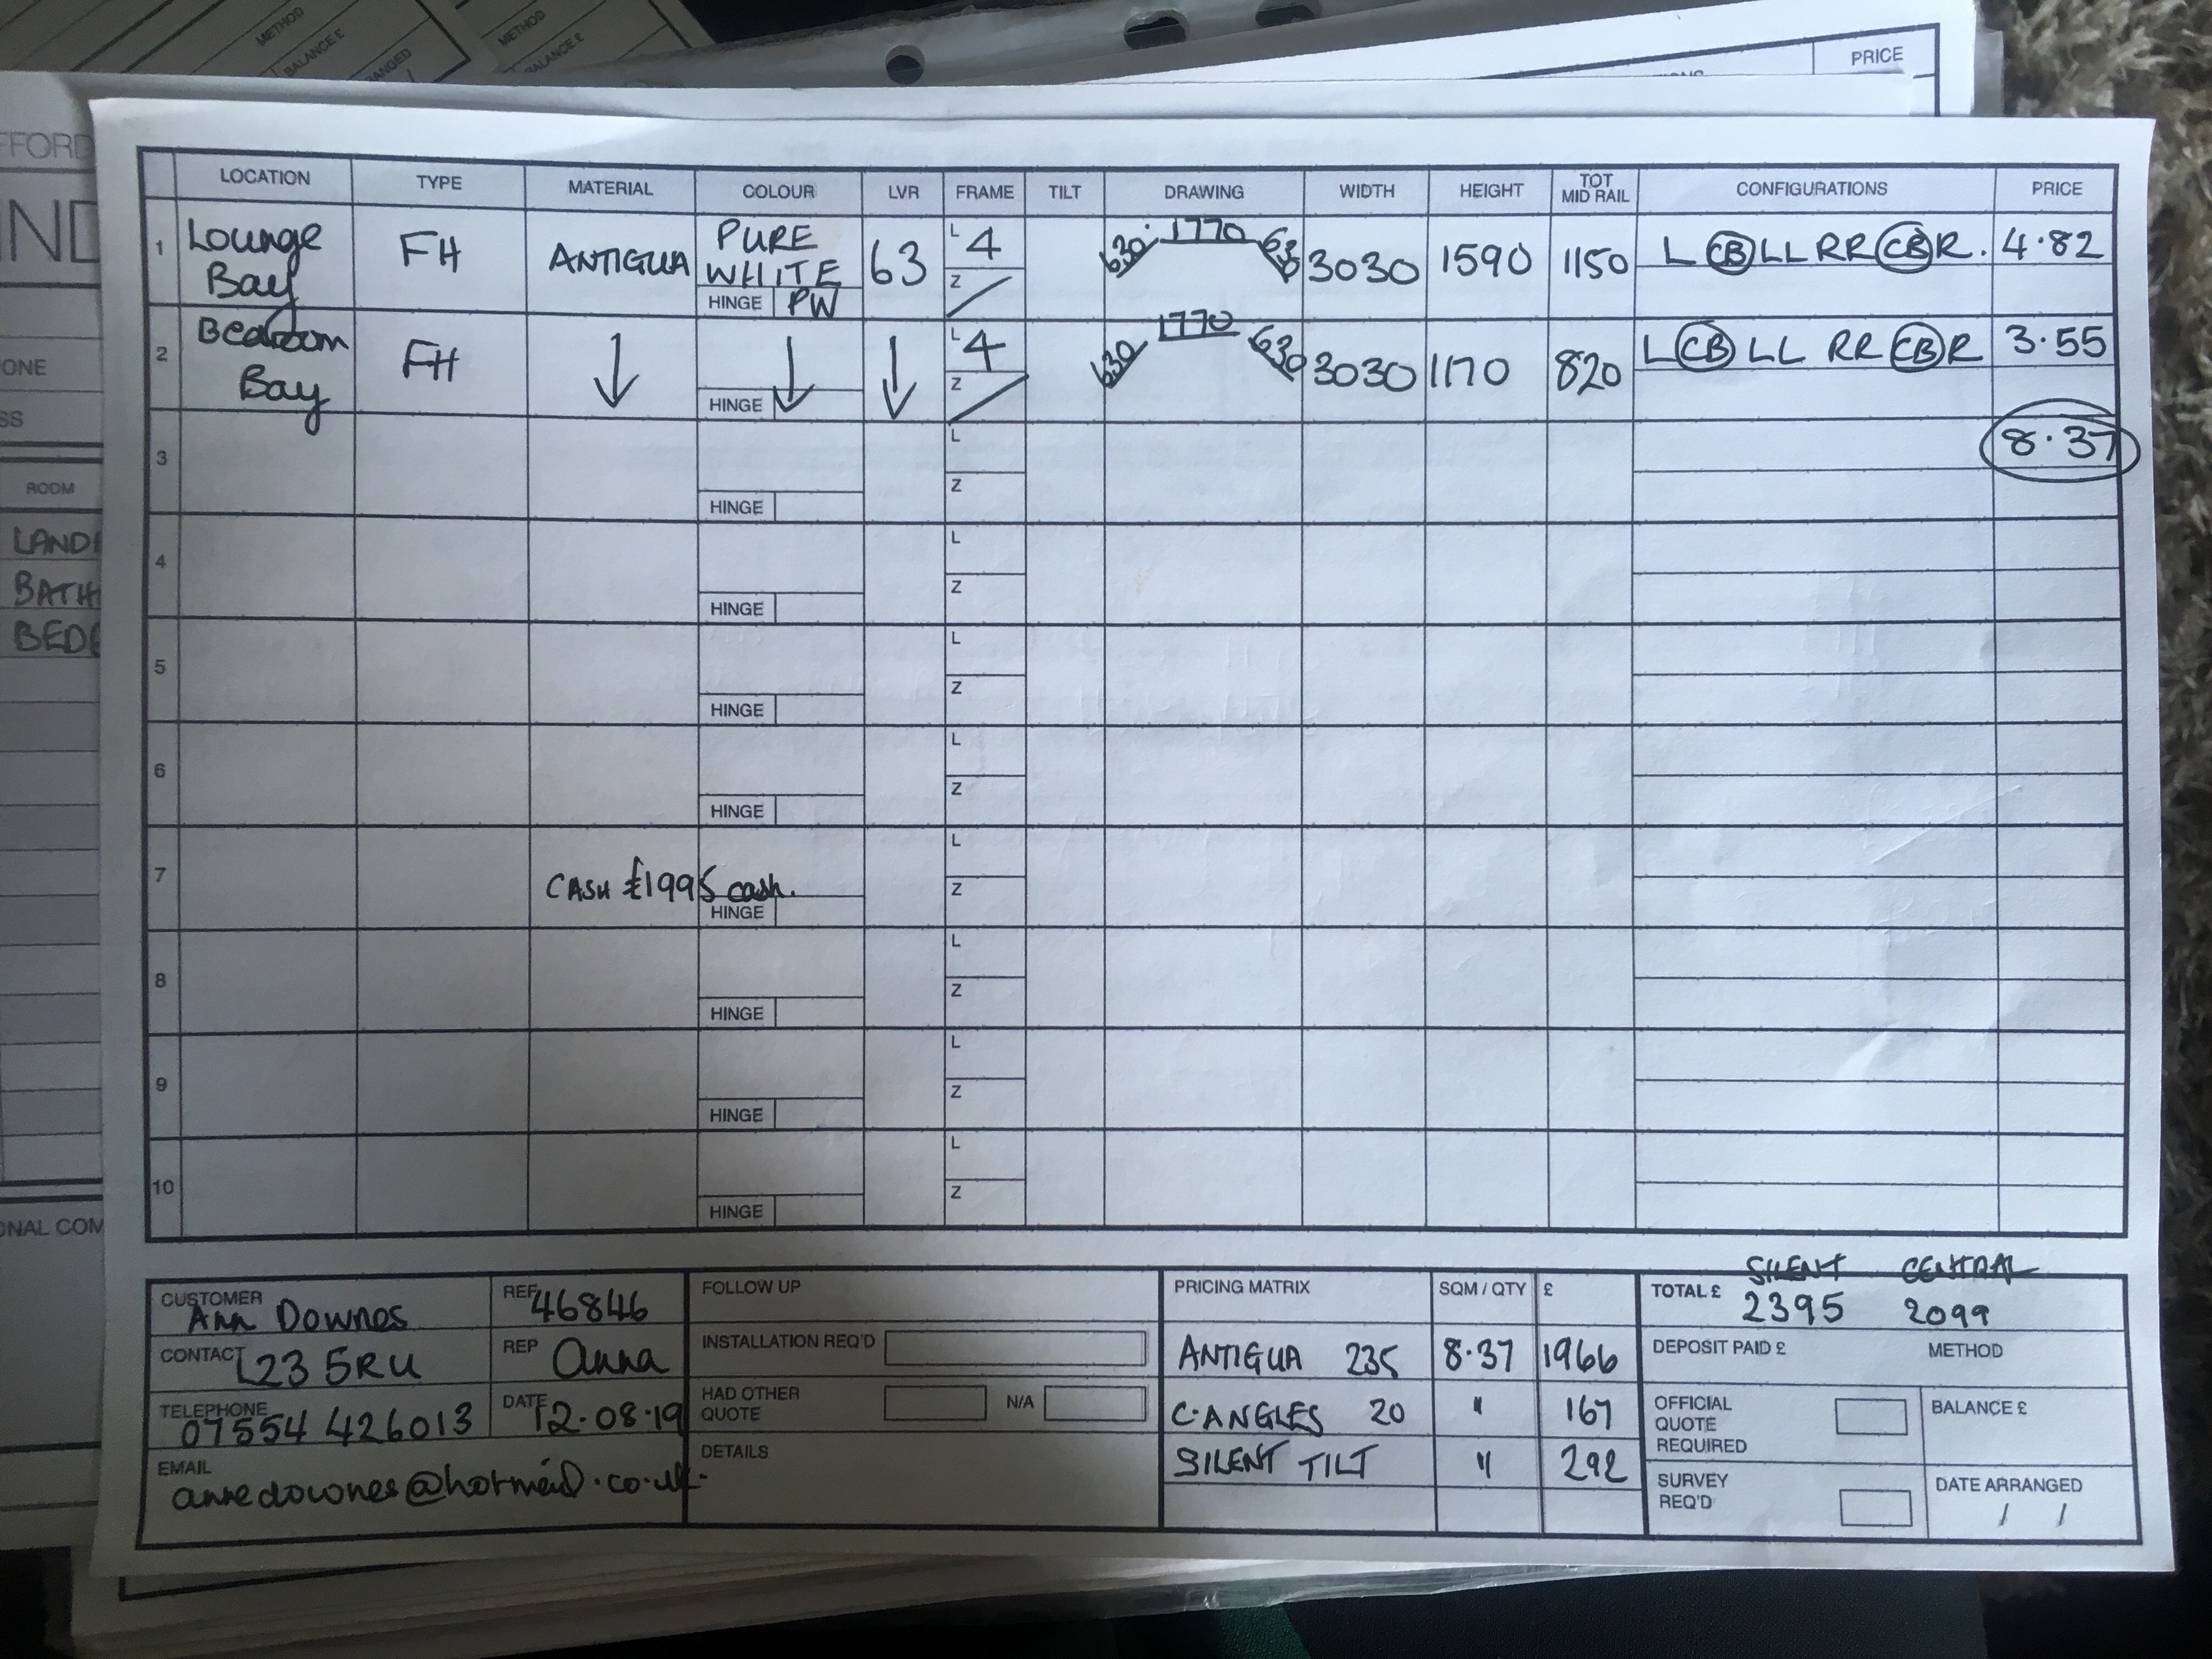 METHOD
BALANCE £
METHOD
BALANCE £
PRICE
ROOM
LOCATION TYPE MATERIAL COLOUR LVR FRAME TILT DRAWING WIDTH HEIGHT TOT MID RAIL CONFIGURATIONS PRICE
1 Lounge Bay FH ANTIGUA PURE WHITE HINGE PW 63 L 4 Z 630 1770 630 3030 1590 1150 L CB LL RR CB R. 4.82
2 Bedroom Bay FH HINGE L 4 Z 630 1770 630 3030 1170 820 L CB LL RR CB R 3.55
3 HINGE L Z 8.37
4 HINGE L Z
5 HINGE L Z
6 HINGE L Z
7 CASH £1995 cash. HINGE L Z
8 HINGE L Z
9 HINGE L Z
10 HINGE L Z
CUSTOMER Ann Downes
REF 46846
CONTACT L23 5RU
REP Anna
TELEPHONE 07554 426013
DATE 12.08.19
EMAIL
annedownes@hotmail.co.uk.
FOLLOW UP
INSTALLATION REQ'D
HAD OTHER QUOTE N/A
DETAILS
PRICING MATRIX SQM / QTY £
ANTIGUA 235 8.37 1966
C.ANGLES 20 " 167
SILENT TILT " 292
SILENT CENTRAL
TOTAL £ 2395 2099
DEPOSIT PAID £ METHOD
OFFICIAL QUOTE REQUIRED
BALANCE £
SURVEY REQ'D
DATE ARRANGED
/ /